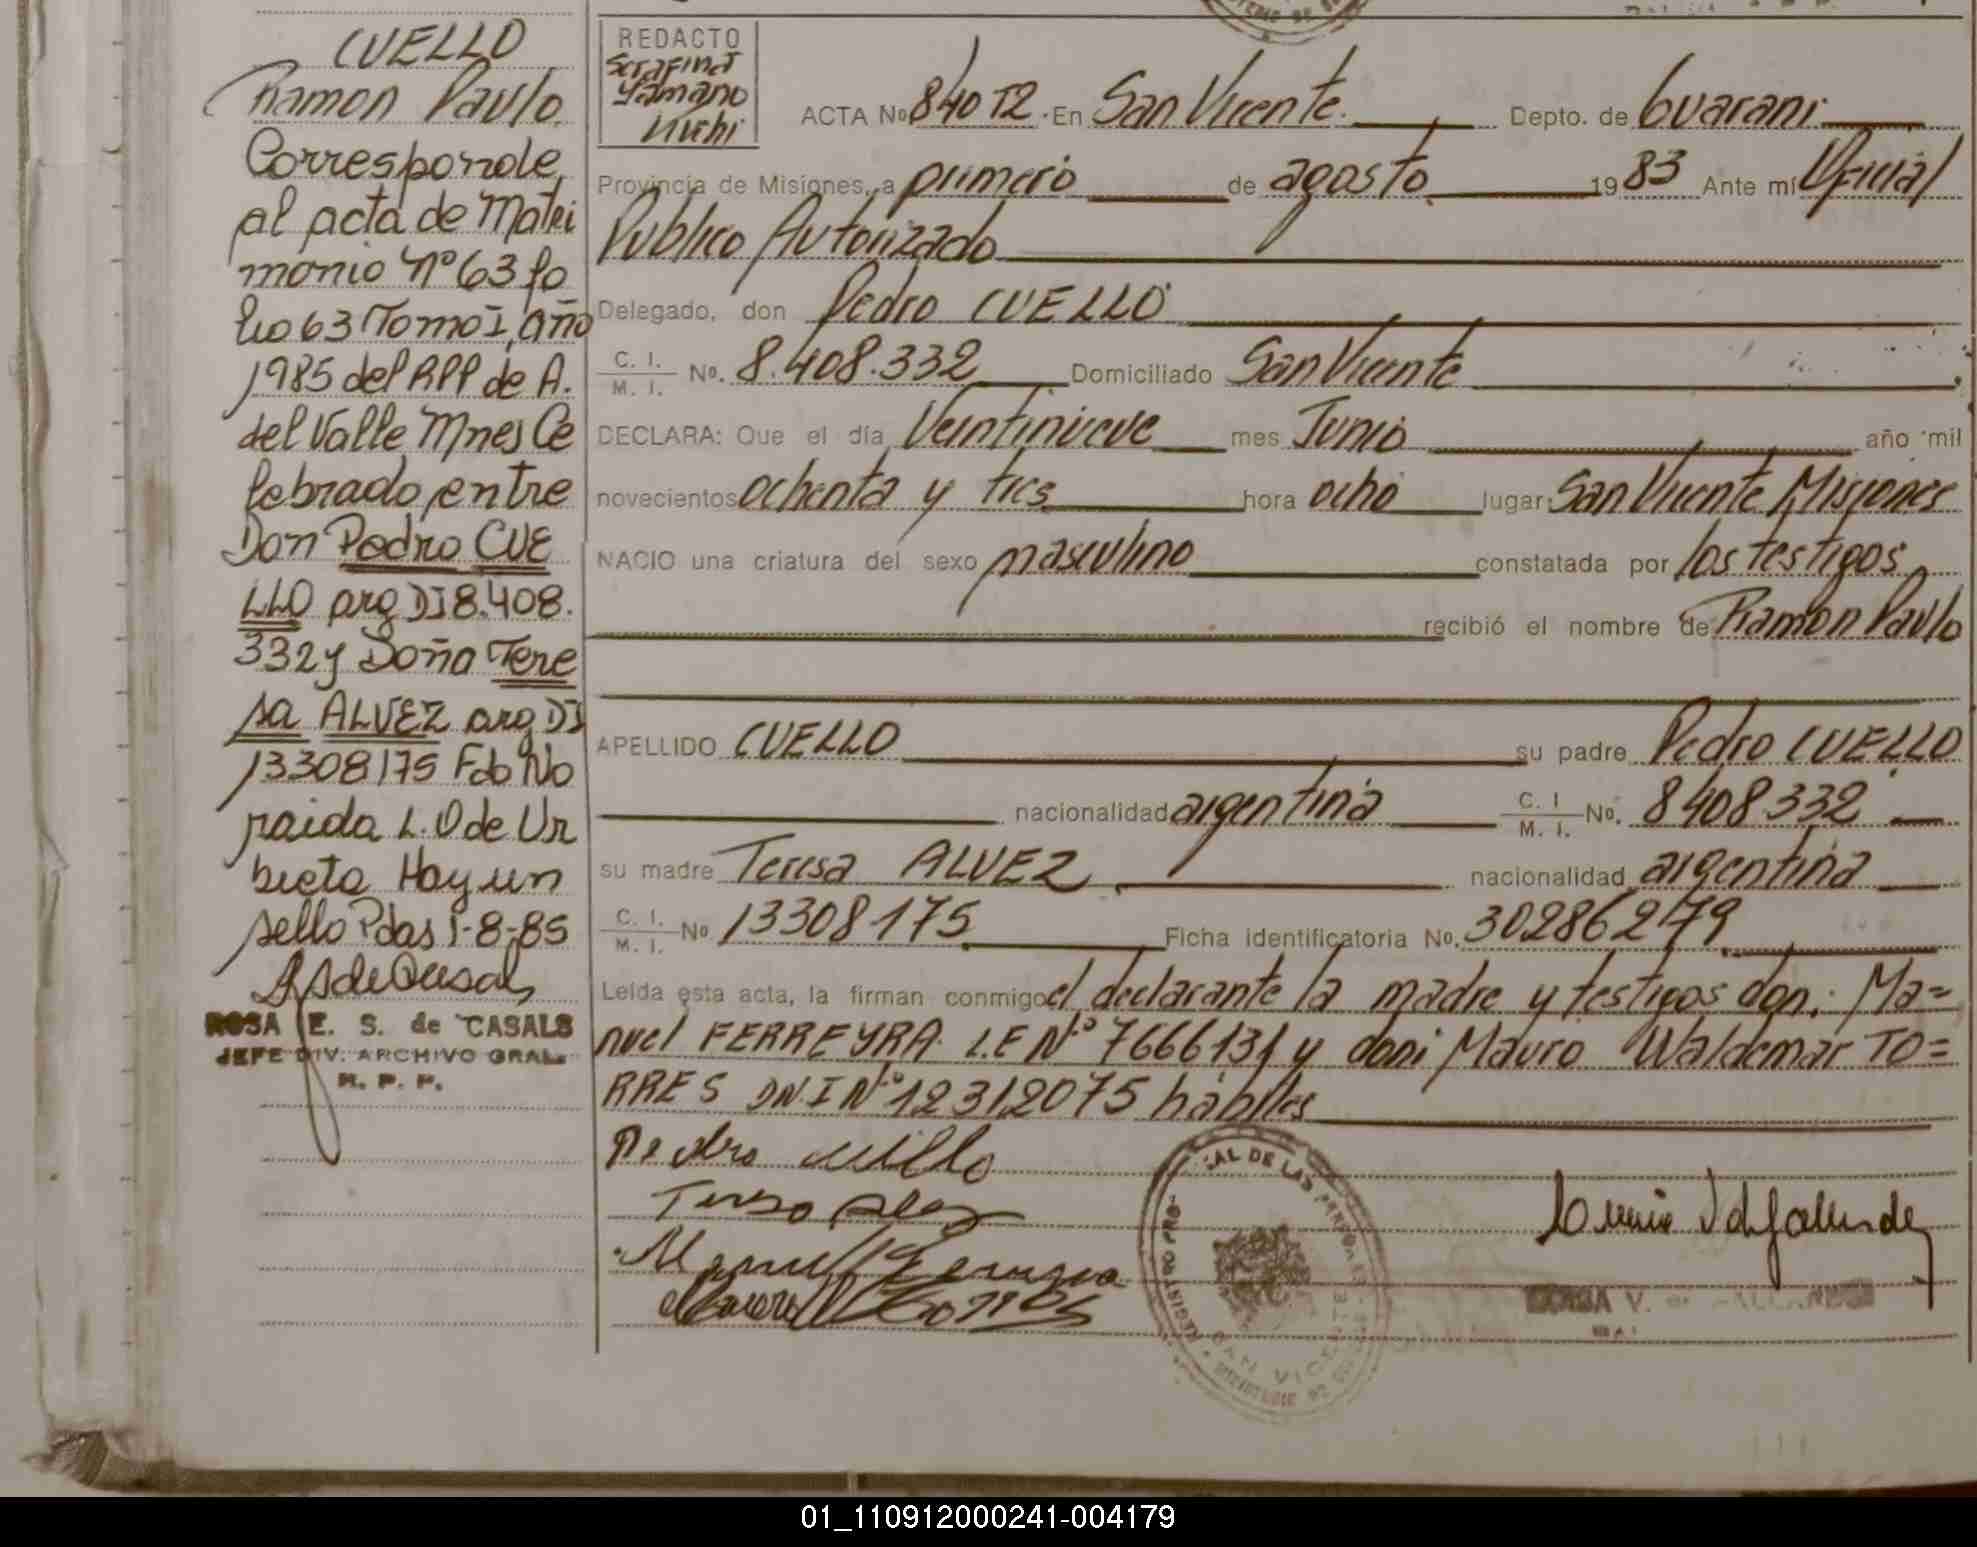 CUELLO
Ramon Paulo.
Corresponde
al acta de Matri
monio Nº 63 fo
lio 63 Tomo I, año
1985 del RPP de A.
del Valle, Mnes Ce
lebrado, entre
Don Pedro CUE
LLO arg DI 8.408.
332 y Doña Tere
sa ALVEZ arg DI
13308175 Fdo No
raida L. O de Ur
bieta Hay un
sello Pdas 1-8-85
ROSA E. S. de CASALS
JEFE DIV. ARCHIVO GRAL.
R. P. P.
REDACTO
Serafina
Yamano
ACTA Nº 840 T2. En San Vicente. Depto. de Guarani
Provincia de Misiones, a primero de agosto 1983 Ante mí Oficial
Publico Autorizado
Delegado, don Pedro CUELLO
C. I. M. I. Nº. 8.408.332 Domiciliado San Vicente
DECLARA: Que el día Veintinueve mes Junio año mil
novecientos ochenta y tres hora ocho lugar: San Vicente Misiones
NACIO una criatura del sexo masculino constatada por los testigos
recibió el nombre de Ramon Paulo
APELLIDO CUELLO su padre Pedro CUELLO
nacionalidad argentina C. I M. I. Nº. 8408332
su madre Teresa ALVEZ nacionalidad argentina
C. I. M. I. Nº 13308175 Ficha identificatoria Nº. 302862179
Leída esta acta, la firman conmigo el declarante la madre y testigos don: Ma=
nuel FERREYRA. L.E Nº 7666131 y don: Mauro Waldemar TO=
RRES DNI Nº 12312075 hábiles
Pedro cuello
Manuel Ferreyra
SAN VICENTE
01_110912000241-004179